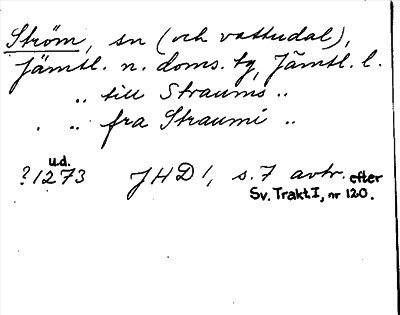 Ström, sn (och vattudal),
Jämtl. n. doms. tg, Jämtl. l.
„ till Straums „
. „ fra Straumi „
u.d.
?1273 JHD 1, s.7 avtr. efter
Sv. Trakt. I, nr 120.